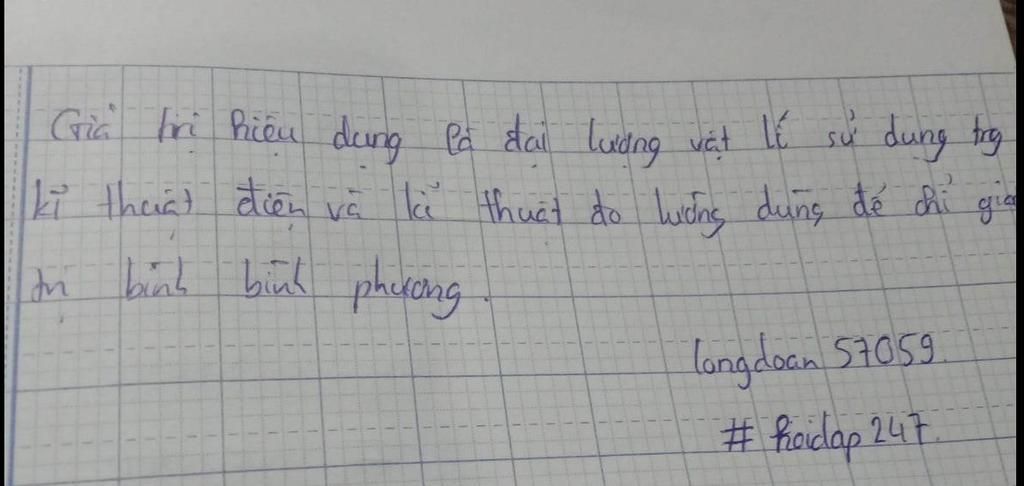 Giá trị hiệu dụng là đại lượng vật lí sử dụng trg
kĩ thuật điện và kĩ thuật đo lường dùng để chỉ giá
trị bình bình phương.
longdoan 57059.
# hoidap 247.